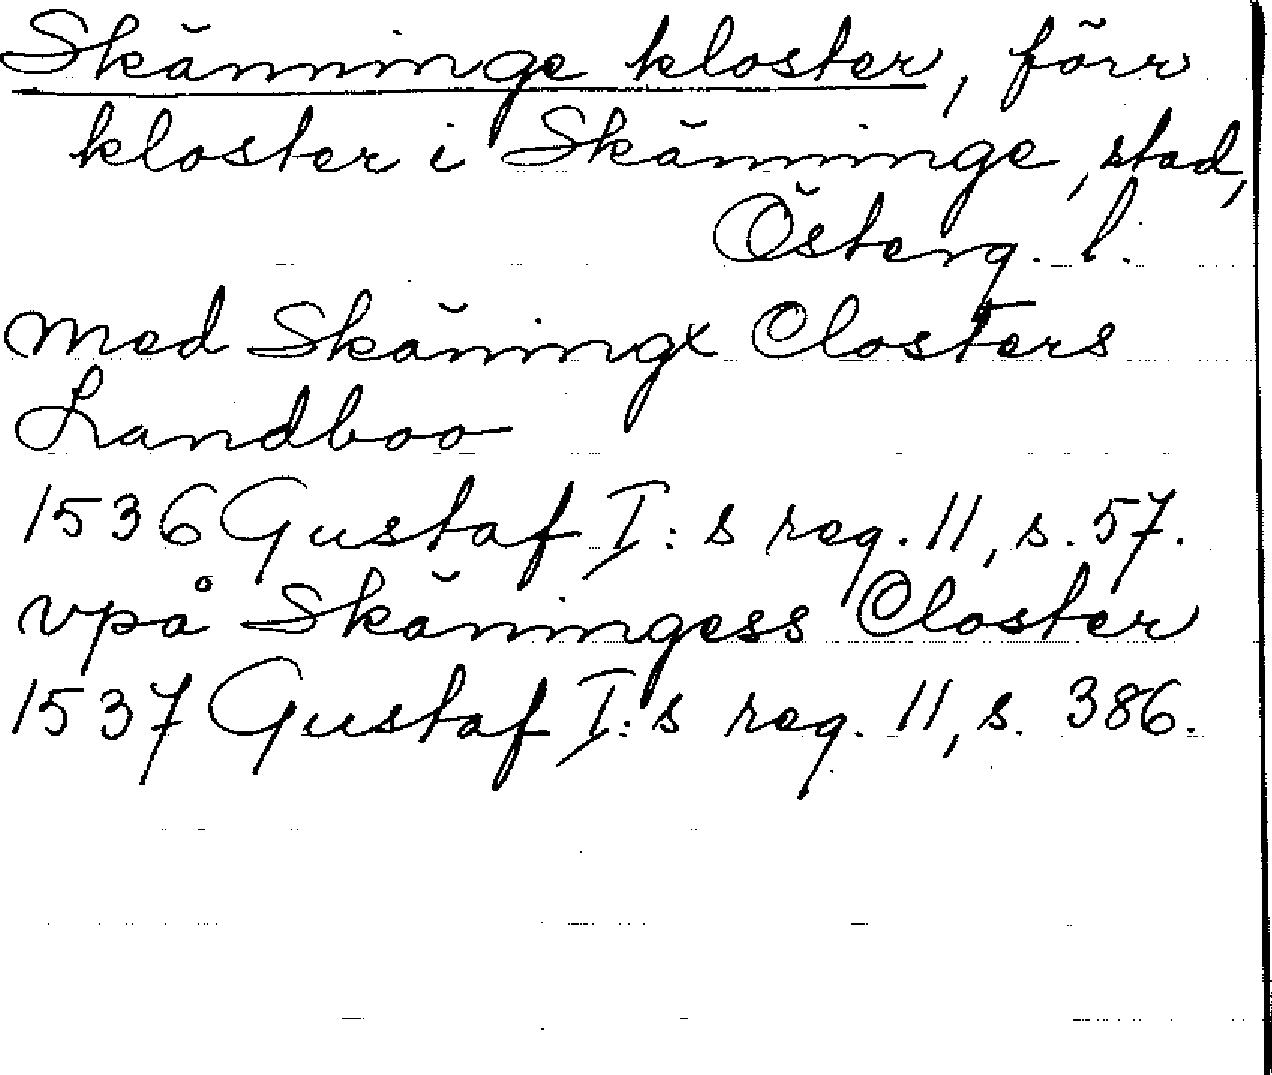 Skänninge kloster, förr
kloster i Skänninge, stad,
Österg. l.
med Skäningx Closters
Landboo
1536 Gustaf I:s reg. 11, s. 57.
vpå Skäningess Closter
1537 Gustaf I:s reg. 11, s. 386.